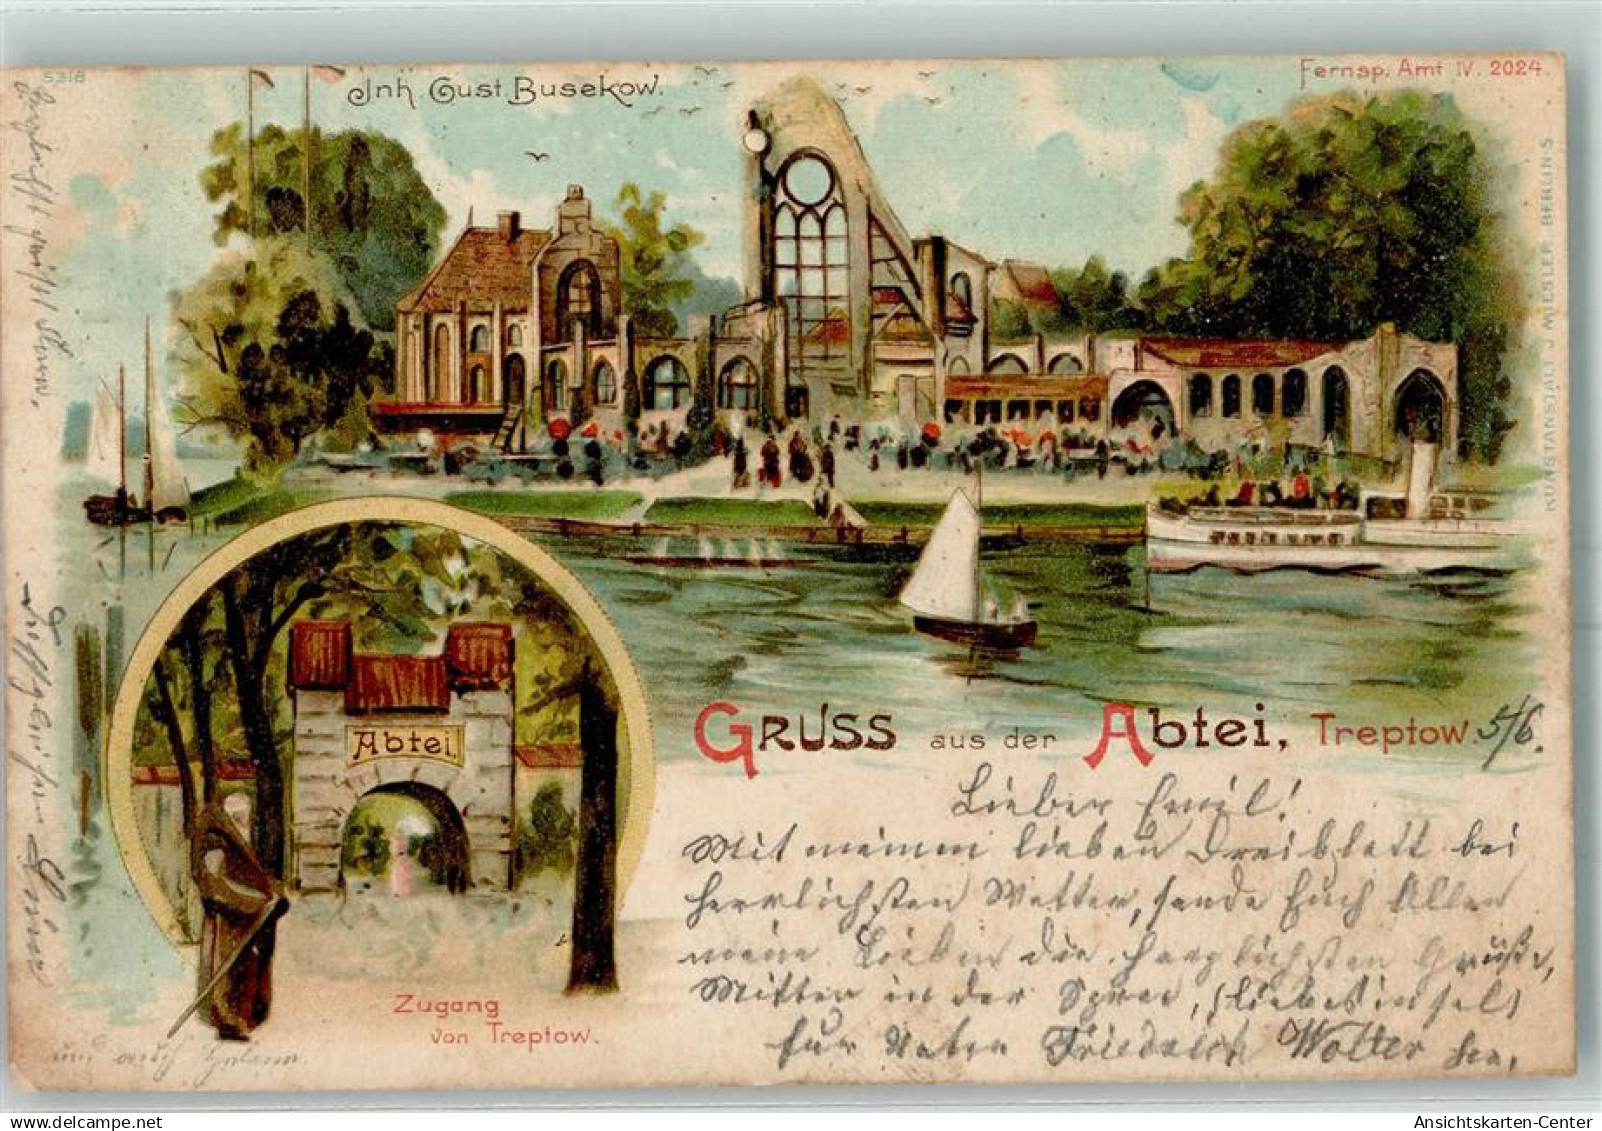 5318
Inh. Gust. Busekow.
Fernsp. Amt IV. 2024.
KUNSTANSTALT J. MIESLER, BERLIN S
Abtei
Zugang
von Treptow.
GRUSS aus der Abtei, Treptow. 5/6.
Lieber Emil!
Mit meinem lieben Dreiblatt bei
herrlichsten Wetter, sende Euch Allen
meine Lieben die herzlichsten Grüße,
Mitten in der Spree, (Liebesinsel)
Euer Vater Friedrich Wolter sen.
und auch
Ansichtskarten-Center